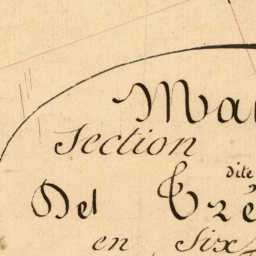 Ma
Section
dite
Del Tré
en six